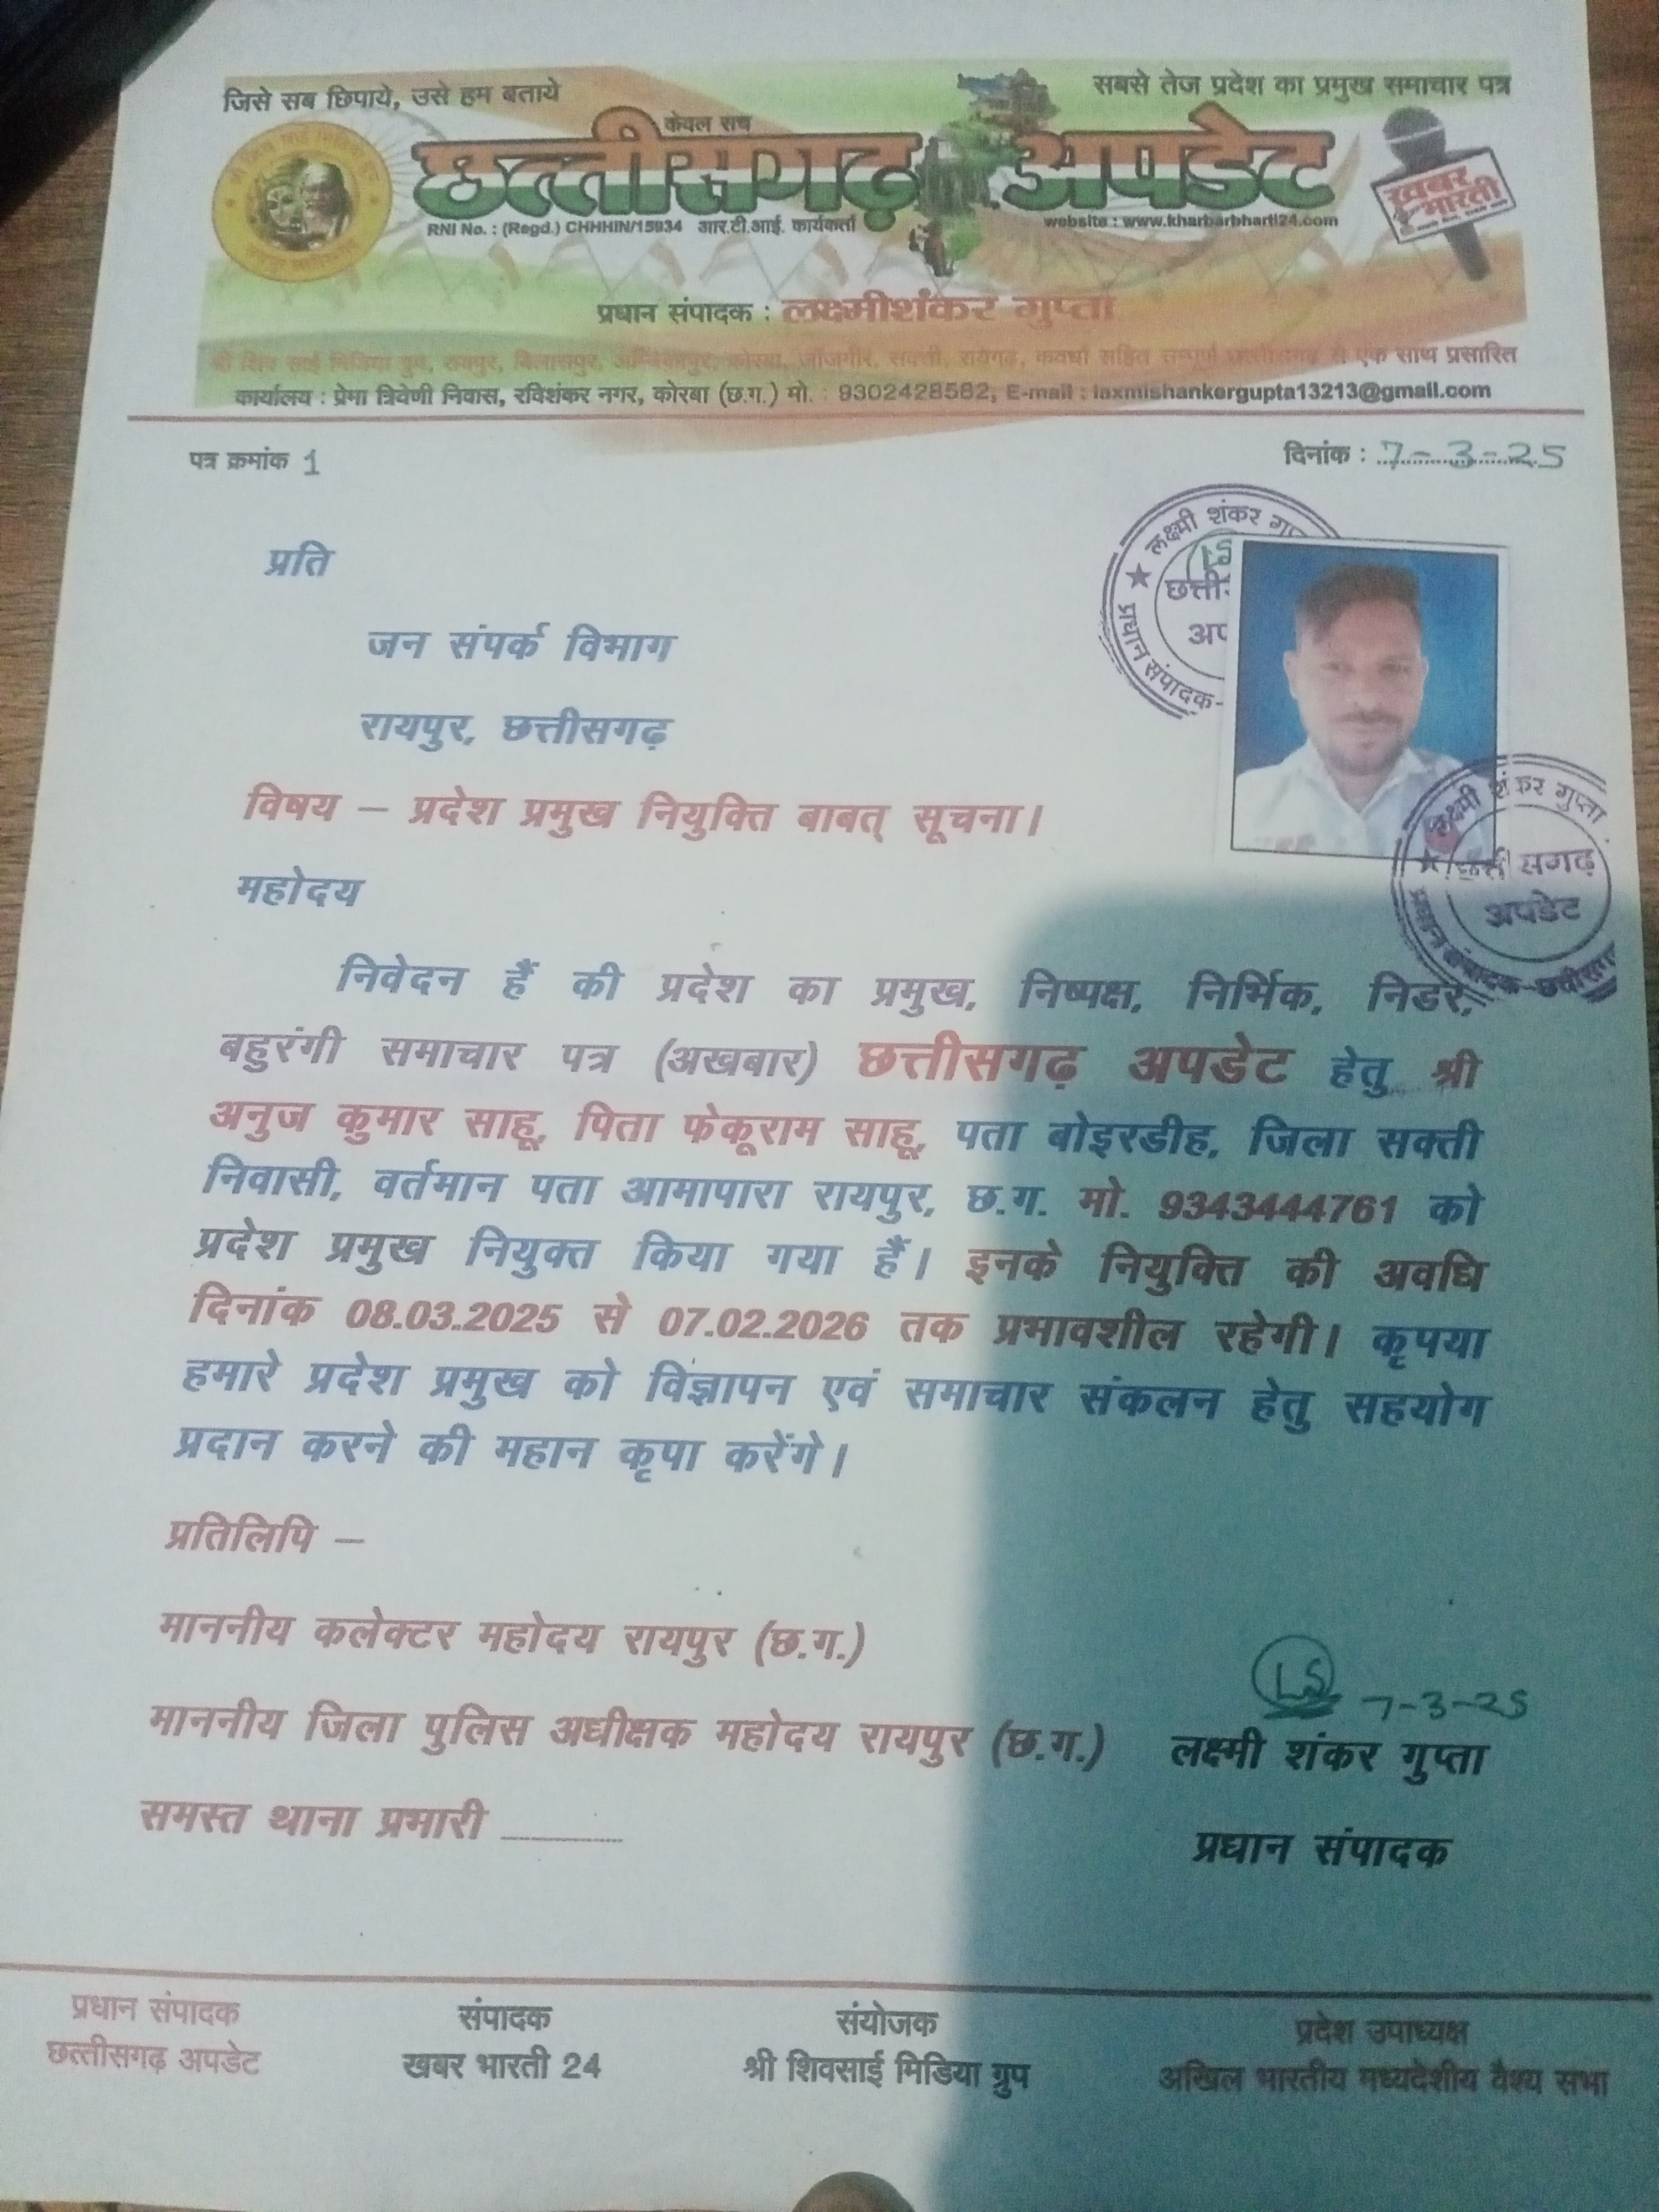 जिसे सब छिपाये, उसे हम बताये
सबसे तेज प्रदेश का प्रमुख समाचार पत्र
केवल सच
छत्तीसगढ़ अपडेट
खबर भारती
RNI No. : (Regd.) CHHHIN/15934 आर.टी.आई. कार्यकर्ता
website : www.kharbarbharti24.com
प्रधान संपादक : लक्ष्मीशंकर गुप्ता
श्री शिव साई मिडिया ग्रुप, रायपुर, बिलासपुर, अम्बिकापुर, कोरबा, जांजगीर, सक्ती, रायगढ़, कवर्धा सहित सम्पूर्ण छत्तीसगढ़ से एक साथ प्रसारित
कार्यालय : प्रेमा त्रिवेणी निवास, रविशंकर नगर, कोरबा (छ.ग.) मो. : 9302428582, E-mail : laxmishankergupta13213@gmail.com
पत्र क्रमांक 1
दिनांक : 7-3-25
लक्ष्मी शंकर
प्रधान संपादक-
प्रति
जन संपर्क विभाग
रायपुर, छत्तीसगढ़
विषय – प्रदेश प्रमुख नियुक्ति बाबत् सूचना।
लक्ष्मी शंकर गुप्ता
छत्तीसगढ़
अपडेट
प्रधान संपादक-छत्तीसगढ़
महोदय
निवेदन हैं की प्रदेश का प्रमुख, निष्पक्ष, निर्भिक, निडर,
बहुरंगी समाचार पत्र (अखबार) छत्तीसगढ़ अपडेट हेतु श्री
अनुज कुमार साहू, पिता फेकूराम साहू, पता बोइरडीह, जिला सक्ती
निवासी, वर्तमान पता आमापारा रायपुर, छ.ग. मो. 9343444761 को
प्रदेश प्रमुख नियुक्त किया गया हैं। इनके नियुक्ति की अवधि
दिनांक 08.03.2025 से 07.02.2026 तक प्रभावशील रहेगी। कृपया
हमारे प्रदेश प्रमुख को विज्ञापन एवं समाचार संकलन हेतु सहयोग
प्रदान करने की महान कृपा करेंगे।
प्रतिलिपि –
माननीय कलेक्टर महोदय रायपुर (छ.ग.)
माननीय जिला पुलिस अधीक्षक महोदय रायपुर (छ.ग.)
समस्त थाना प्रभारी
LS 7-3-25
लक्ष्मी शंकर गुप्ता
प्रधान संपादक
प्रधान संपादक
छत्तीसगढ़ अपडेट
संपादक
खबर भारती 24
संयोजक
श्री शिवसाई मिडिया ग्रुप
प्रदेश उपाध्यक्ष
अखिल भारतीय मध्यदेशीय वैश्य सभा